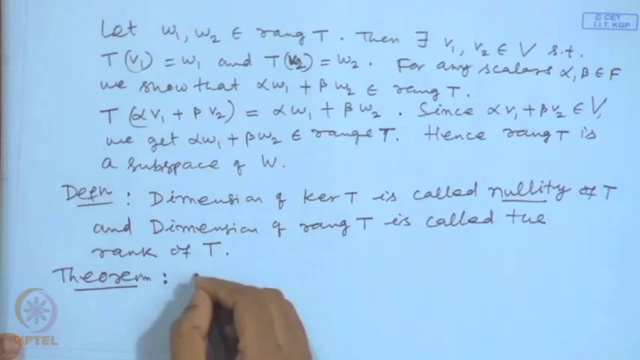 © CET
I.I.T. KGP
Let w₁, w₂ ∈ rang T. Then ∃ v₁, v₂ ∈ V s.t.
T(v₁) = w₁ and T(v₂) = w₂. For any scalars α, β ∈ F
we show that αw₁ + βw₂ ∈ rang T.
T(αv₁ + βv₂) = αw₁ + βw₂. Since αv₁ + βv₂ ∈ V,
we get αw₁ + βw₂ ∈ range T. Hence rang T is
a subspace of W.
Defn : Dimension of ker T is called nullity of T
and Dimension of rang T is called the
rank of T.
Theorem :
NPTEL